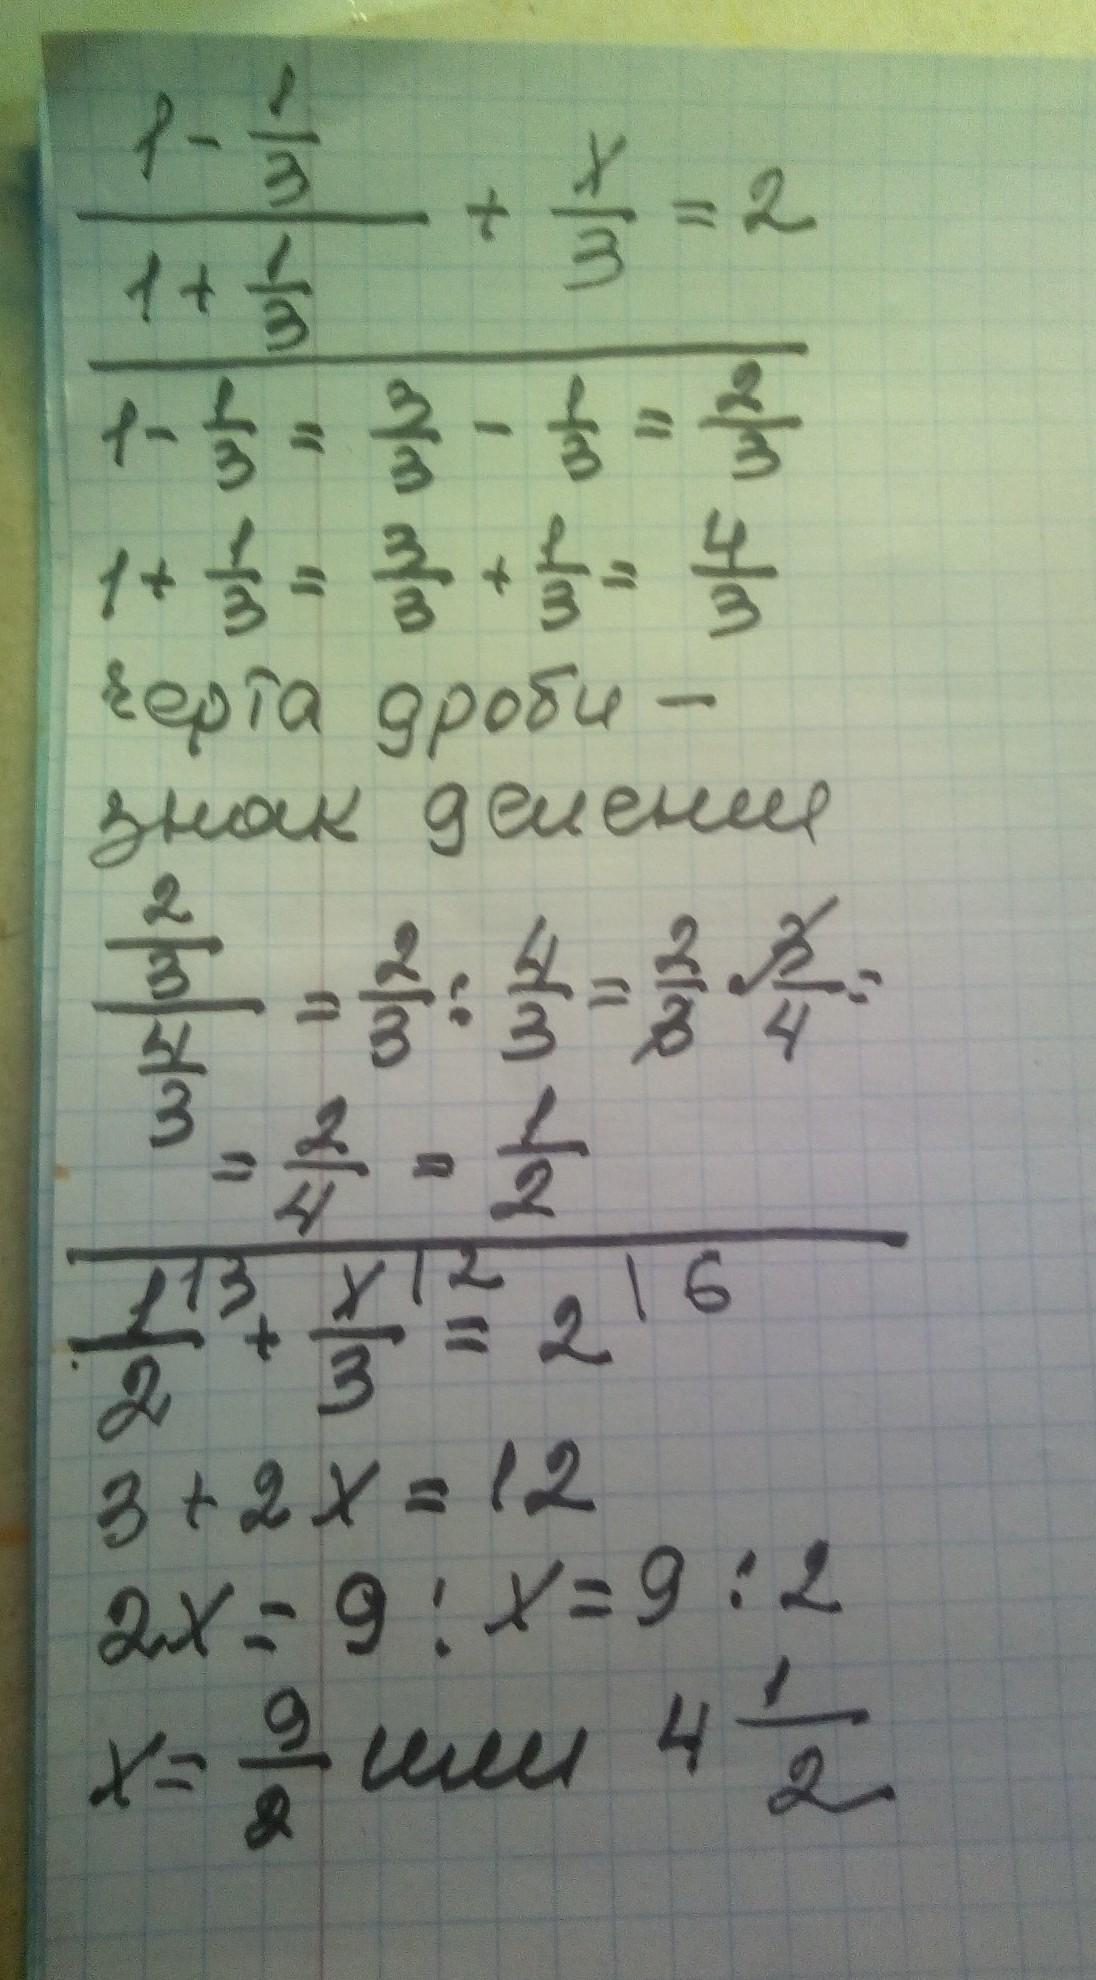 (1 - 1/3)/(1 + 1/3) + x/3 = 2
1 - 1/3 = 3/3 - 1/3 = 2/3
1 + 1/3 = 3/3 + 1/3 = 4/3
черта дроби -
знак деления
(2/3)/(4/3) = 2/3 : 4/3 = 2/3 · 3/4 =
= 2/4 = 1/2
1/2 |3 + x/3 |2 = 2 |6
3 + 2x = 12
2x = 9 ; x = 9 : 2
x = 9/2 или 4 1/2